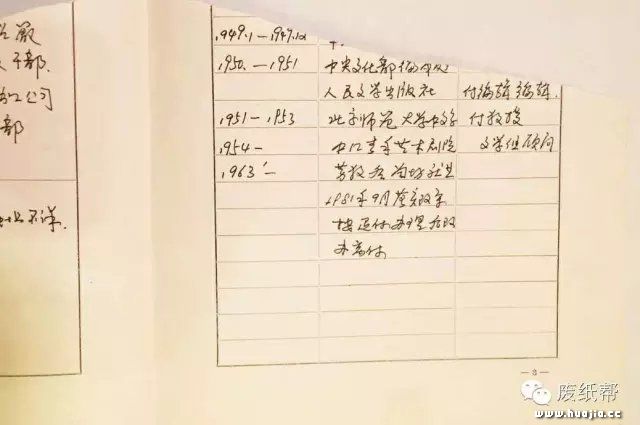 干部.
公司
部
不详.
1949.1—1949.12
1950.—1951 中央文化部编审处
人民文学出版社 付编辑 编辑.
1951—1953 北京师范大学中文系 付教授
1954— 中国青年艺术剧院 文学组顾问
1963— 劳教后留场就业
1981年9月落实政策
按退休办理后改
办离休
废纸帮
www.huajia.cc